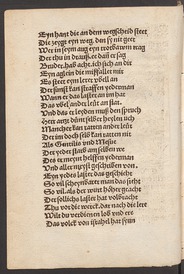 Eyn hant die an dem wegscheid steet
Die zeygt eyn weg, den sy nit geet
Wer in seym aug eyn trotbawm trag
Der thu in drauß, ee daß er sag
Bruder hab acht, ich sich an dir
Eyn äglein die mißfallet mir
Es steet eym lerer übel an
Der sunst kan straffen yederman
Wann er das laster an im hat
Das übel ander lüt an stat
Und das er lyden muß den spruch
Herr artzt dunt selber heylen üch
Mancher kan ratten ander lüt
Der im doch selb kan ratten nit
Als Gentilis und Mesue
Der yeder starb am selben we
Des er meynt helffen yederman
Und aller meyst geschriben von,
Eyn yedes laster das geschicht
So vil scheynbarer man das sycht
So vil als der würt höher geacht
Der sollich laster hat volbracht
Thu vor die werck, dar nach die ler
Wilt du verdienen lob und er
Das volck von israhel hat syn